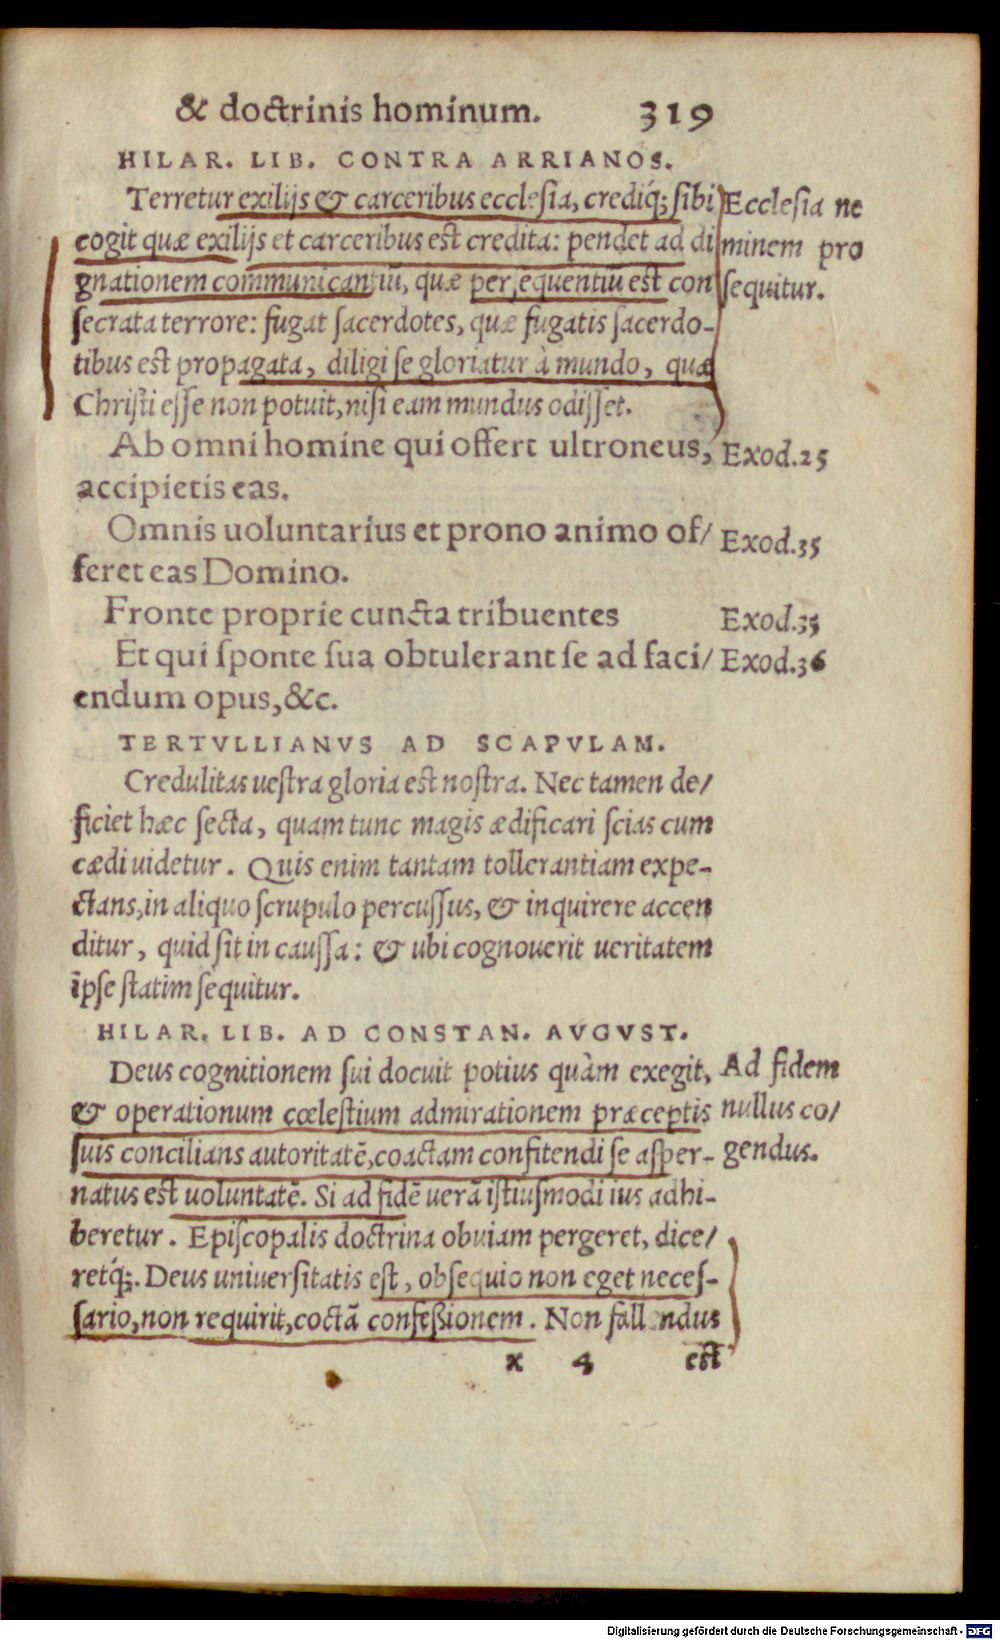 & doctrinis hominum. 319
HILAR. LIB. CONTRA ARRIANOS.
Terretur exilijs & carceribus ecclesia, crediq́; sibi
cogit quæ exilijs et carceribus est credita: pendet ad di
gnationem communicantiū, quæ persequentiū est con
secrata terrore: fugat sacerdotes, quæ fugatis sacerdo-
tibus est propagata, diligi se gloriatur à mundo, quæ
Christi esse non potuit, nisi eam mundus odisset.
Ecclesia ne
minem pro
sequitur.
Ab omni homine qui offert ultroneus,
accipietis eas.
Exod.25
Omnis uoluntarius et prono animo of/
feret eas Domino.
Exod.35
Fronte proprie cuncta tribuentes
Exod.35
Et qui sponte sua obtulerant se ad faci/
endum opus, &c.
Exod.36
TERTVLLIANVS AD SCAPVLAM.
Credulitas uestra gloria est nostra. Nec tamen de/
ficiet hæc secta, quam tunc magis ædificari scias cum
cædi uidetur. Quis enim tantam tollerantiam expe-
ctans, in aliquo scrupulo percussus, & inquirere accen
ditur, quid sit in caussa: & ubi cognouerit ueritatem
ipse statim sequitur.
HILAR. LIB. AD CONSTAN. AVGVST.
Deus cognitionem sui docuit potius quàm exegit,
& operationum cœlestium admirationem præceptis
suis concilians autoritatē, coactam confitendi se asper-
natus est uoluntatē. Si ad fidē uerā istiusmodi ius adhi-
beretur. Episcopalis doctrina obuiam pergeret, dice/
retq́;. Deus uniuersitatis est, obsequio non eget neces-
sario, non requirit, coctā confeßionem. Non fallendus
Ad fidem
nullus co/
gendus.
x 4 est
Digitalisierung gefördert durch die Deutsche Forschungsgemeinschaft - DFG